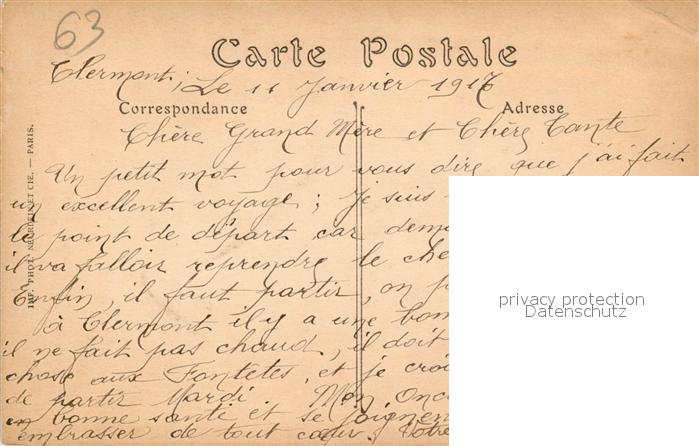 63
Carte Postale
Clermont, Le 11 Janvier 1917
Correspondance
Adresse
Chère Grand Mère et Chère Tante
Un petit mot pour vous dire que j'ai fait
un excellent voyage ; je suis
le point de départ car dem
il va falloir reprendre le che
Enfin, il faut partir, on
à Clermont il y a une bon
il ne fait pas chaud, il doit
chose aux Fontetes, et je croi
de partir Mardi. Mon Onc
en bonne santé et se joignen
embrasser de tout cœur. Votre
IMP. PHOT. NEURDEIN ET CIE. — PARIS.
privacy protection
Datenschutz